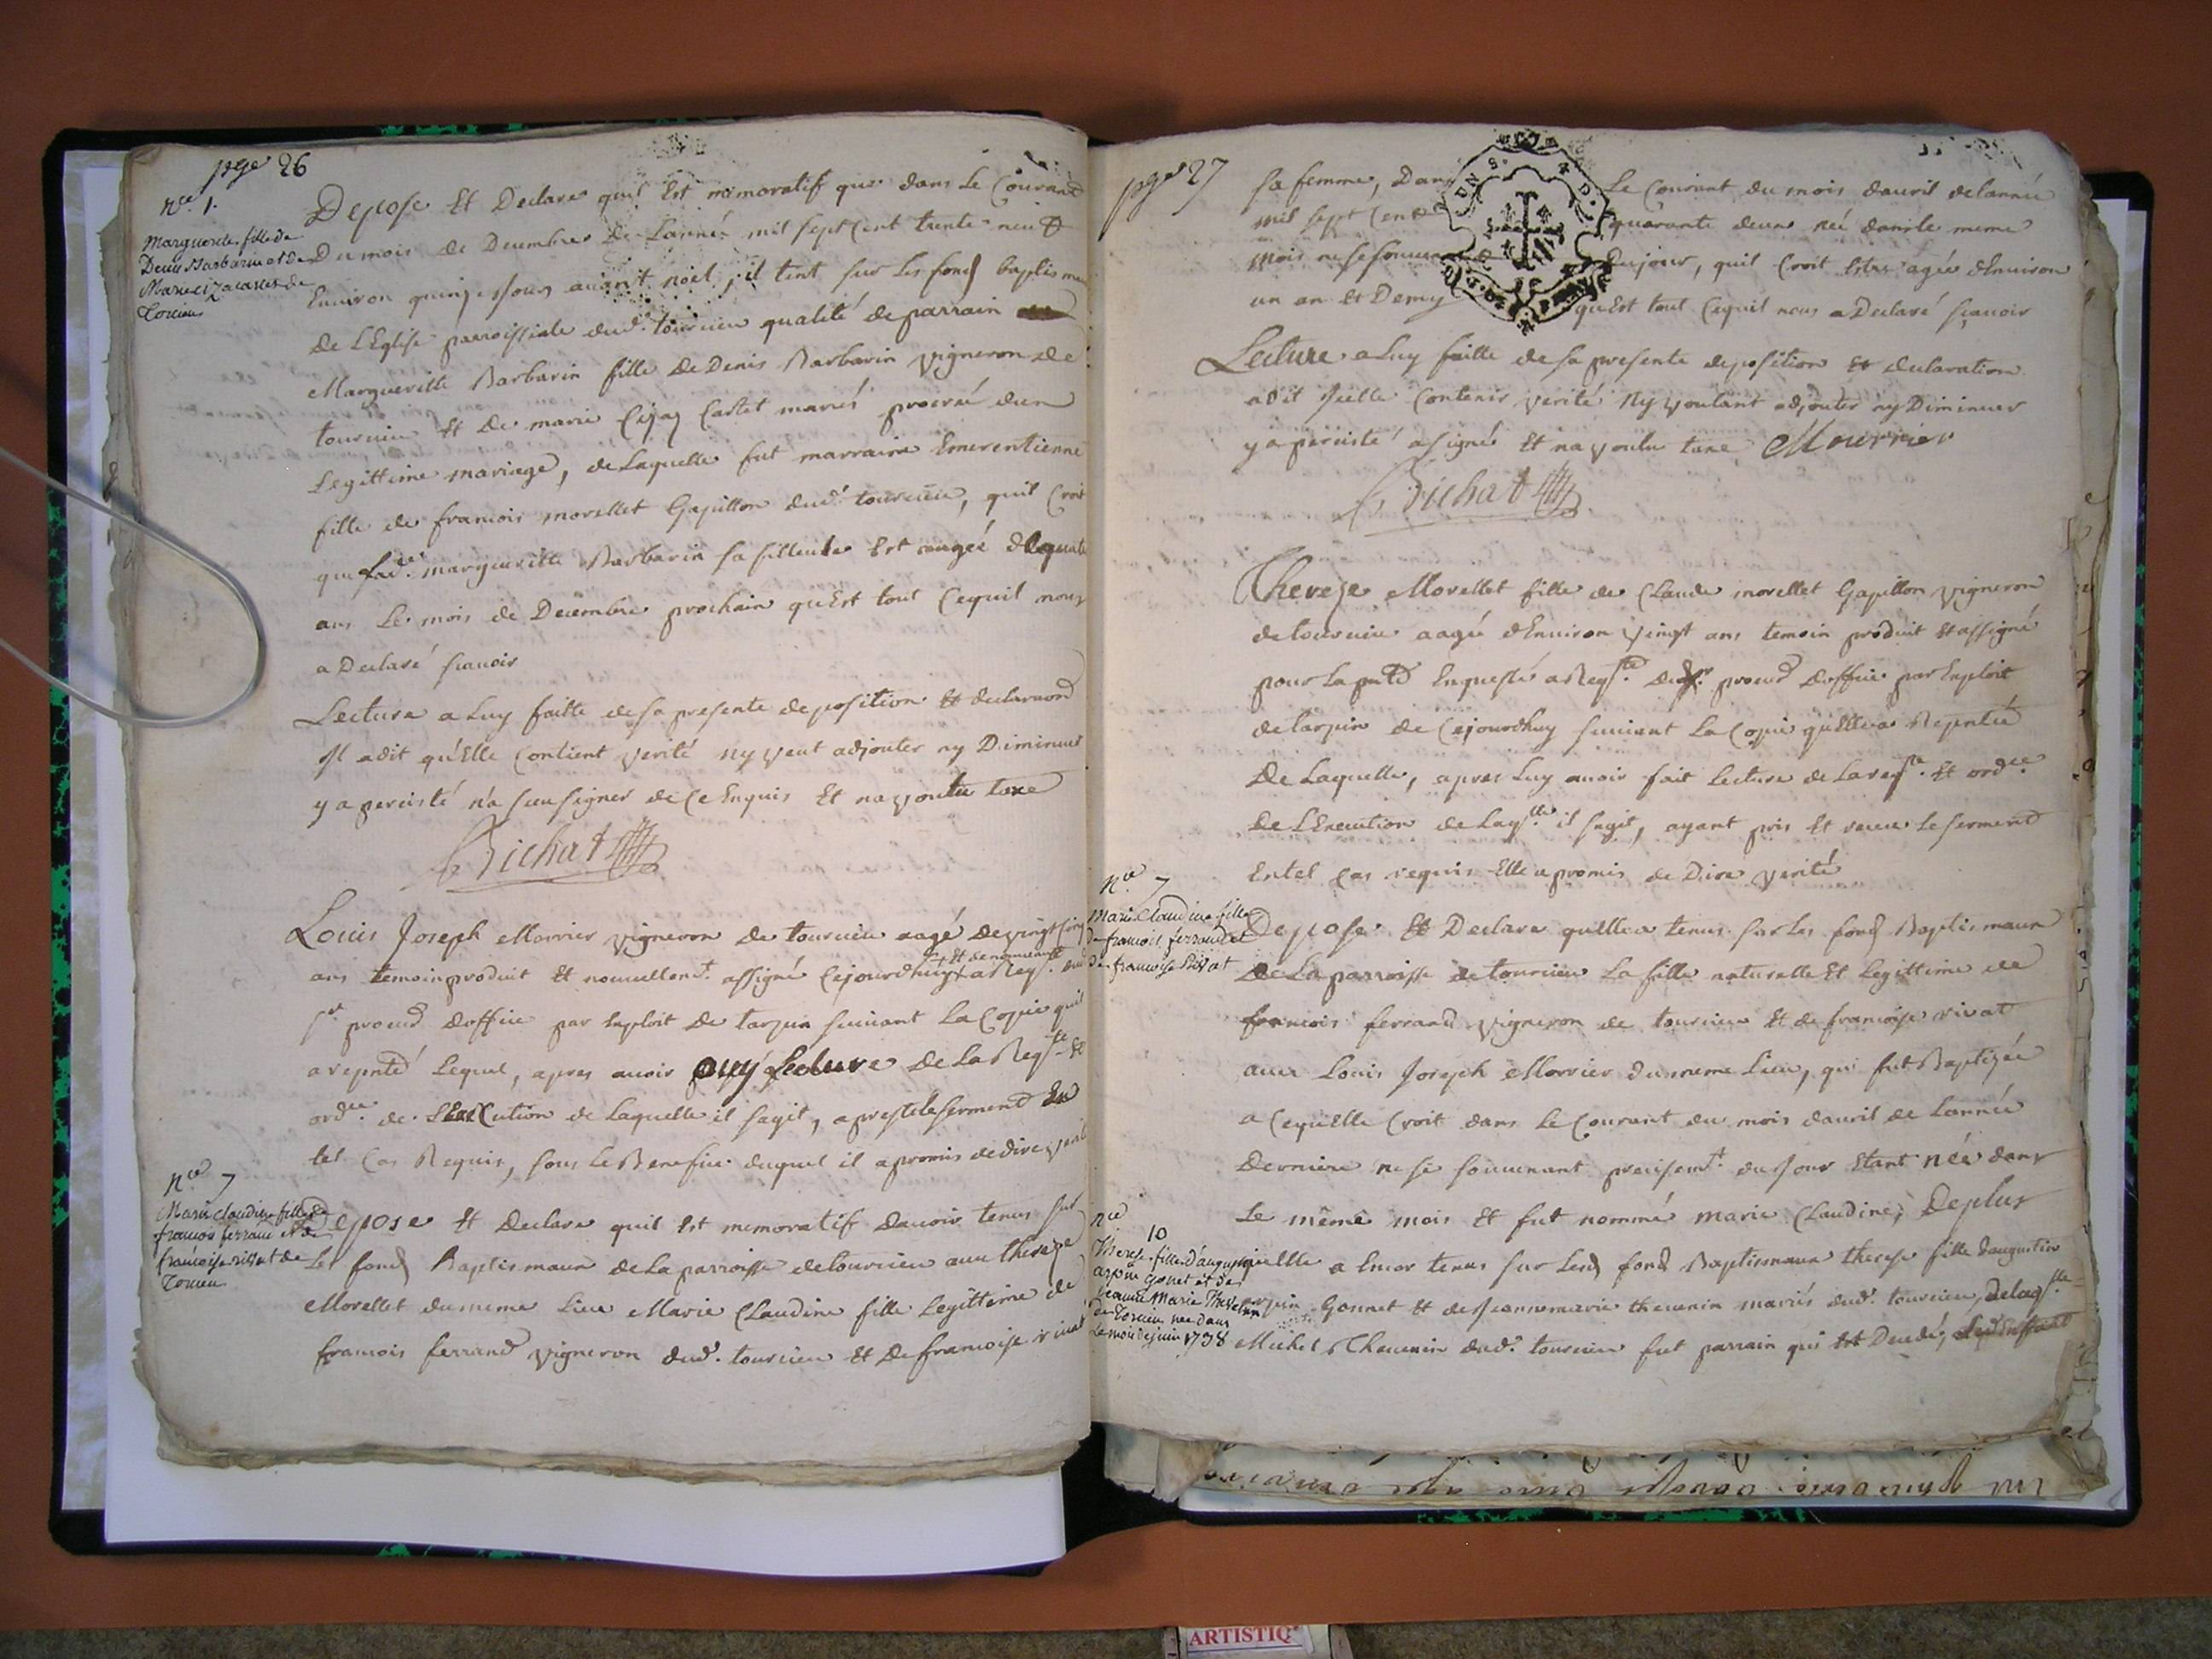 pge 26
Nce. 1.
Marguerite fille de
Denis Barbarin et de
Marie cizacartet de
Torcieu
Depose Et Declare quil Est memoratif que dans Le Courant
Du mois de Decembre De Lanné mil sept Cent trente neuf
Environ quinze Jours avant noël, il tint sur les fonds baptismaux
de LEglise parroissiale dud. tourcieu qualité de parrain
Margueritte Barbarin fille De Denis Barbarin vigneron de
tourcieu Et de marie Cizay Cartet mariés procréé dun
Legittime mariage, de Laquelle fut marraine Emerentienne
fille de francois morellet Gapillon dud. tourcieu, quil Croit
que Lade. margueritte Barbarin sa filleule Est aagéé de quatre
ans Le mois de Decembre prochain quEst tout Cequil nous
a Declaré scavoir
Lecture a Luy faitte de sa presente deposition Et declaraond
Il adit qu'Elle Contient verité ny veut adjouter ny Diminuer
y a percisté n'a sceu signer de Ce Enquis Et na voulu taxe
Brichat
Louis Joseph Morrier vigneron de tourcieu aagé de vingt cinq
ans temoin produit Et nouvellemt. assigné Cejourdhuy + Et de nouveau a Reqte. dud
sr. procurd. doffice par Exploit de tarpin suivant La Copie quil
a repnté Lequel, apres avoir ouy Lecture de La Reqte. Et
ordce. de LExecution de Laquelle il sagit, a preste le serment En
tel Cas Requis, sous Le Benefice duquel il a promis de dire verité
Nce 7
Marie claudine fille de
francois ferrand et de
francoise rivat de
Torcieu
Depose Et Declare quil Est memoratif Davoir tenus sur
Les fonds Baptismaux de La parroisse de tourcieu avec therese
Morellet du meme Lieu Marie Claudine fille Legittime de
francois ferrand vigneron dud. tourcieu Et De francoise rivat
pge 27
sa femme, Dans Le Courant du mois davril de lannée
mil sept Cent quarante deux néé dans le meme
mois ne se souvenant Du jour, quil Croit Estre agéé dEnviron
un an Et Demy quEst tout Cequil nous a Declaré scavoir
Lecture a Luy faitte de sa presente deposition Et declaration
a dit Icelle Contenir verité Ny voulant adjouter ny Diminuer
y a percisté a signé Et na voulu taxe Mourrier
Brichat
Therese Morellet fille de Claude morellet Gapillon vigneron
de tourcieu aagéé dEnviron vingt ans temoin produit Et assigné
pour La pnte Enquesté a Reqte. dud. sr. procurd Doffice par Exploit
de tarpin de Cejourdhuy suivant La Copie quElle a Repntée
De Laquelle, apres Luy avoir fait lecture de La reqte. Et ordce.
de LExecution de Laqlle. il sagit, ayant pris Et receu Le serment
En tel Cas requis Elle a promis de Dire verité
Nce 7
Marie Claudine fille
de francois ferrand et
de francoise Rivat
Depose Et Declare quElle a tenus sur Les fonds Baptismaux
De La parroisse de tourcieu La fille naturelle Et Legittime de
francois ferrand vigneron de tourcieu Et de francoise rivat
avec Louis Joseph Morrier du meme Lieu, qui fut Baptizée
a Cequ'Elle Croit dans Le Courant du mois davril de Lannée
Derniere ne se souvenant precisemt. du Jour Etant néé dans
Le même mois Et fut nommé marie Claudine; De plus
nce
10
Therese fille d'augustin
arpin gonet et de
jeanne Marie Thevenin
de Torcieu née dans
le mois de juin 1738
quElle a Encor tenus sur Lesd. fonds Baptismaux therese fille daugustin
arpin Gonnet Et de Jeanne marie thevenin mariés dud. tourcieu, De laqlle.
Michel Thevenin dud. tourcieu fut parrain qui Est Decedé,
ARTISTIQ